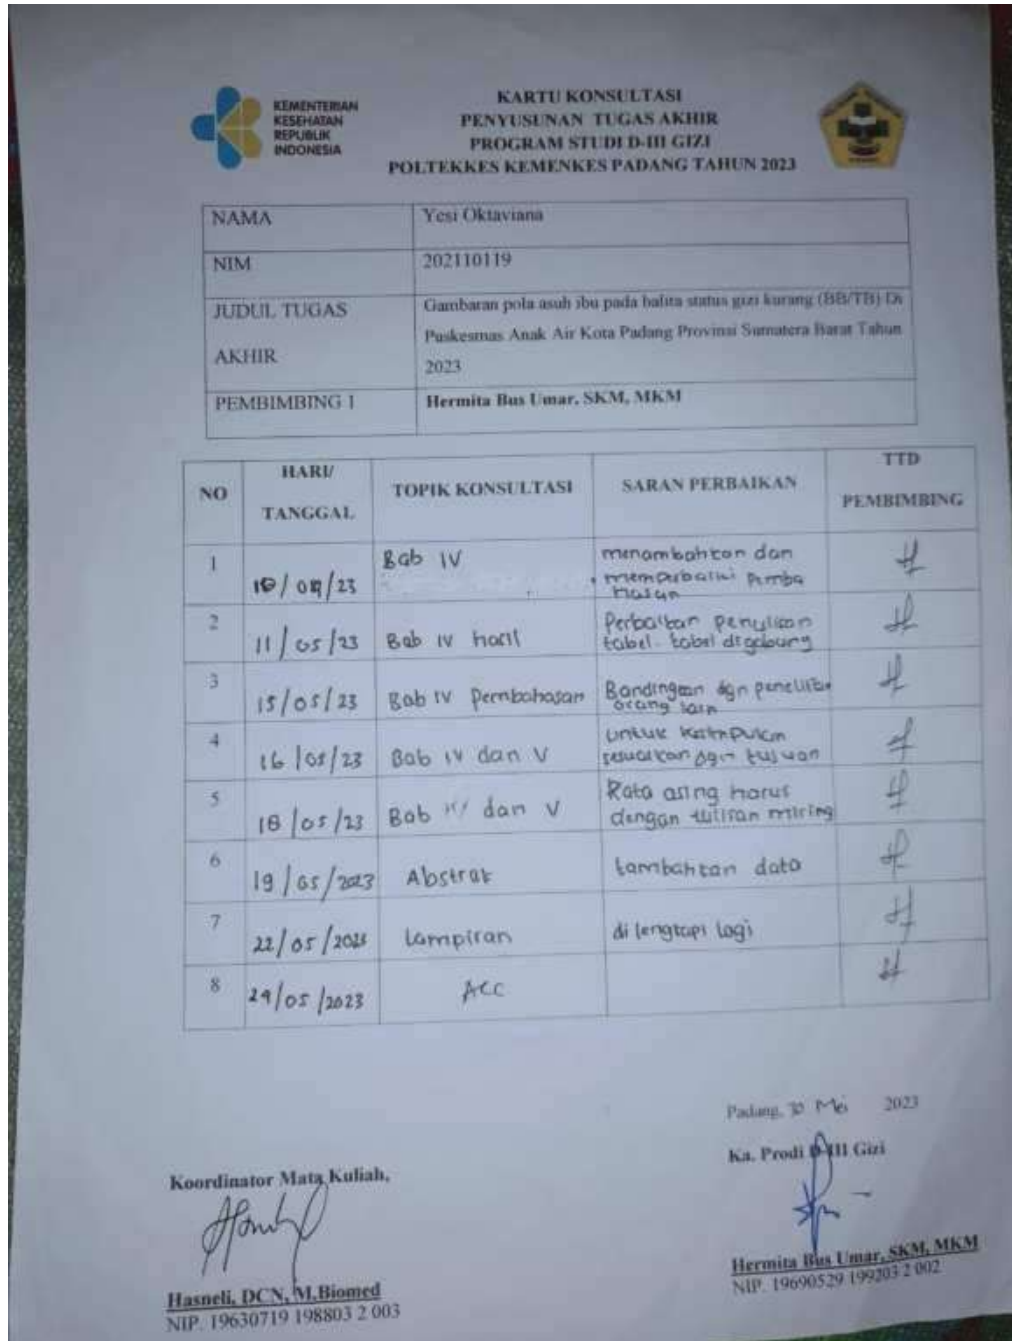 KEMENTERIAN
KESEHATAN
REPUBLIK
INDONESIA
KARTU KONSULTASI
PENYUSUNAN TUGAS AKHIR
PROGRAM STUDI D-III GIZI
POLTEKKES KEMENKES PADANG TAHUN 2023
NAMA Yesi Oktaviana
NIM 202110119
JUDUL TUGAS AKHIR
Gambaran pola asuh ibu pada balita status gizi kurang (BB/TB) Di
Puskesmas Anak Air Kota Padang Provinsi Sumatera Barat Tahun
2023
PEMBIMBING I Hermita Bus Umar, SKM, MKM
NO HARI/ TANGGAL TOPIK KONSULTASI SARAN PERBAIKAN TTD PEMBIMBING
1 Bab IV menambahkan dan
memperbaiki pemba
hasan
2 11/05/23 Bab IV hasil Perbaikan penulisan
tabel. tabel digabung
3 15/05/23 Bab IV Pembahasan Bandingan dgn penelitian
orang lain
4 16/05/23 Bab IV dan V untuk kesimpulan
sesuaikan dgn tujuan
5 18/05/23 Bab IV dan V Kata asing harus
dengan tulisan miring
6 19/05/2023 Abstrak tambahkan data
7 22/05/2023 Lampiran di lengkapi lagi
8 /05/2023 Acc
Padang, 30 Mei 2023
Ka. Prodi D-III Gizi
Koordinator Mata Kuliah,
Hermita Bus Umar, SKM, MKM
NIP. 19690529 199203 2 002
Hasneli, DCN, M.Biomed
NIP. 19630719 198803 2 003